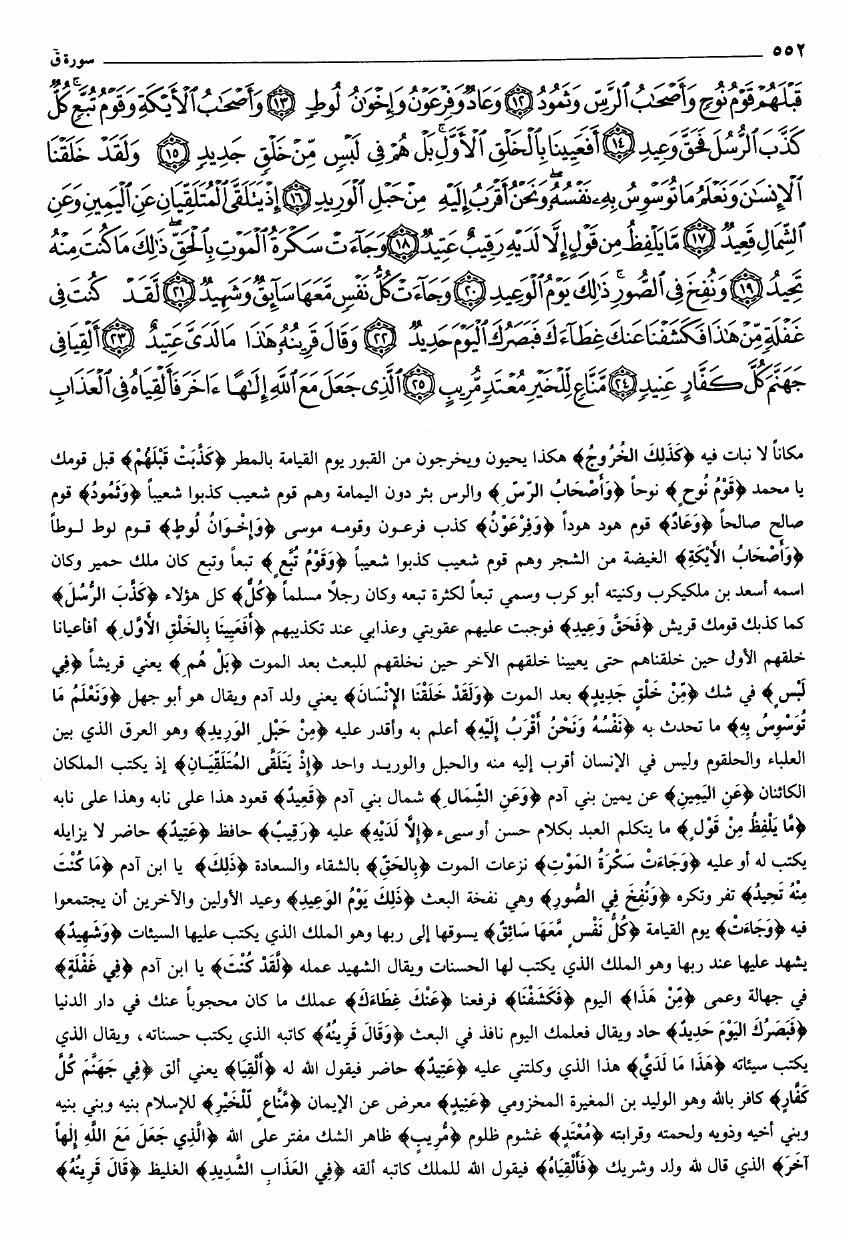 ٥٥٢
سورة قۤ
قَبْلَهُمْ قَوْمُ نُوحٍ وَأَصْحَٰبُ ٱلرَّسِّ وَثَمُودُ ١٢ وَعَادٌ وَفِرْعَوْنُ وَإِخْوَٰنُ لُوطٍ ١٣ وَأَصْحَٰبُ ٱلْأَيْكَةِ وَقَوْمُ تُبَّعٍ ۚ كُلٌّ
كَذَّبَ ٱلرُّسُلَ فَحَقَّ وَعِيدِ ١٤ أَفَعَيِينَا بِٱلْخَلْقِ ٱلْأَوَّلِ ۚ بَلْ هُمْ فِى لَبْسٍ مِّنْ خَلْقٍ جَدِيدٍ ١٥ وَلَقَدْ خَلَقْنَا
ٱلْإِنسَٰنَ وَنَعْلَمُ مَا تُوَسْوِسُ بِهِۦ نَفْسُهُۥ ۖ وَنَحْنُ أَقْرَبُ إِلَيْهِ مِنْ حَبْلِ ٱلْوَرِيدِ ١٦ إِذْ يَتَلَقَّى ٱلْمُتَلَقِّيَانِ عَنِ ٱلْيَمِينِ وَعَنِ
ٱلشِّمَالِ قَعِيدٌ ١٧ مَّا يَلْفِظُ مِن قَوْلٍ إِلَّا لَدَيْهِ رَقِيبٌ عَتِيدٌ ١٨ وَجَآءَتْ سَكْرَةُ ٱلْمَوْتِ بِٱلْحَقِّ ۖ ذَٰلِكَ مَا كُنتَ مِنْهُ
تَحِيدُ ١٩ وَنُفِخَ فِى ٱلصُّورِ ۚ ذَٰلِكَ يَوْمُ ٱلْوَعِيدِ ٢٠ وَجَآءَتْ كُلُّ نَفْسٍ مَّعَهَا سَآئِقٌ وَشَهِيدٌ ٢١ لَّقَدْ كُنتَ فِى
غَفْلَةٍ مِّنْ هَٰذَا فَكَشَفْنَا عَنكَ غِطَآءَكَ فَبَصَرُكَ ٱلْيَوْمَ حَدِيدٌ ٢٢ وَقَالَ قَرِينُهُۥ هَٰذَا مَا لَدَىَّ عَتِيدٌ ٢٣ أَلْقِيَا فِى
جَهَنَّمَ كُلَّ كَفَّارٍ عَنِيدٍ ٢٤ مَّنَّاعٍ لِّلْخَيْرِ مُعْتَدٍ مُّرِيبٍ ٢٥ ٱلَّذِى جَعَلَ مَعَ ٱللَّهِ إِلَٰهًا ءَاخَرَ فَأَلْقِيَاهُ فِى ٱلْعَذَابِ
مكاناً لا نبات فيه ﴿كَذَلِكَ الخُرُوجُ﴾ هكذا يحيون ويخرجون من القبور يوم القيامة بالمطر ﴿كَذَّبَتْ قَبْلَهُمْ﴾ قبل قومك
يا محمد ﴿قَوْمُ نُوحٍ﴾ نوحاً ﴿وَأَصْحَابُ الرَّسِّ﴾ والرس بئر دون اليمامة وهم قوم شعيب كذبوا شعيباً ﴿وَثَمُودُ﴾ قوم
صالح صالحاً ﴿وَعَادٌ﴾ قوم هود هوداً ﴿وَفِرْعَوْنُ﴾ كذب فرعون وقومه موسى ﴿وَإِخْوَانُ لُوطٍ﴾ قوم لوط لوطاً
﴿وَأَصْحَابُ الأَيْكَةِ﴾ الغيضة من الشجر وهم قوم شعيب كذبوا شعيباً ﴿وَقَوْمُ تُبَّعٍ﴾ تبعاً وتبع كان ملك حمير وكان
اسمه أسعد بن ملكيكرب وكنيته أبو كرب وسمي تبعاً لكثرة تبعه وكان رجلاً مسلماً ﴿كُلٌّ﴾ كل هؤلاء ﴿كَذَّبَ الرُّسُلَ﴾
كما كذبك قومك قريش ﴿فَحَقَّ وَعِيدِ﴾ فوجبت عليهم عقوبتي وعذابي عند تكذيبهم ﴿أَفَعَيِينَا بِالخَلْقِ الأَوَّلِ﴾ أفأعيانا
خلقهم الأول حين خلقناهم حتى يعيينا خلقهم الآخر حين نخلقهم للبعث بعد الموت ﴿بَلْ هُمْ﴾ يعني قريشاً ﴿فِي
لَبْسٍ﴾ في شك ﴿مِّنْ خَلْقٍ جَدِيدٍ﴾ بعد الموت ﴿وَلَقَدْ خَلَقْنَا الإِنْسَانَ﴾ يعني ولد آدم ويقال هو أبو جهل ﴿وَنَعْلَمُ مَا
تُوَسْوِسُ بِهِ﴾ ما تحدث به ﴿نَفْسُهُ وَنَحْنُ أَقْرَبُ إِلَيْهِ﴾ أعلم به وأقدر عليه ﴿مِنْ حَبْلِ الوَرِيدِ﴾ وهو العرق الذي بين
العلباء والحلقوم وليس في الإنسان أقرب إليه منه والحبل والوريد واحد ﴿إِذْ يَتَلَقَّى المُتَلَقِّيَانِ﴾ إذ يكتب الملكان
الكائنان ﴿عَنِ اليَمِينِ﴾ عن يمين بني آدم ﴿وَعَنِ الشِّمَالِ﴾ شمال بني آدم ﴿قَعِيدٌ﴾ قعود هذا على نابه وهذا على نابه
﴿مَّا يَلْفِظُ مِنْ قَوْلٍ﴾ ما يتكلم العبد بكلام حسن أو سيىء ﴿إِلَّا لَدَيْهِ﴾ عليه ﴿رَقِيبٌ﴾ حافظ ﴿عَتِيدٌ﴾ حاضر لا يزايله
يكتب له أو عليه ﴿وَجَاءَتْ سَكْرَةُ المَوْتِ﴾ نزعات الموت ﴿بِالحَقِّ﴾ بالشقاء والسعادة ﴿ذَلِكَ﴾ يا ابن آدم ﴿مَا كُنْتَ
مِنْهُ تَحِيدُ﴾ تفر وتكره ﴿وَنُفِخَ فِي الصُّورِ﴾ وهي نفخة البعث ﴿ذَلِكَ يَوْمُ الوَعِيدِ﴾ وعيد الأولين والآخرين أن يجتمعوا
فيه ﴿وَجَاءَتْ﴾ يوم القيامة ﴿كُلُّ نَفْسٍ مَّعَهَا سَائِقٌ﴾ يسوقها إلى ربها وهو الملك الذي يكتب عليها السيئات ﴿وَشَهِيدٌ﴾
يشهد عليها عند ربها وهو الملك الذي يكتب لها الحسنات ويقال الشهيد عمله ﴿لَّقَدْ كُنْتَ﴾ يا ابن آدم ﴿فِي غَفْلَةٍ﴾
في جهالة وعمى ﴿مِّنْ هَذَا﴾ اليوم ﴿فَكَشَفْنَا﴾ فرفعنا ﴿عَنْكَ غِطَاءَكَ﴾ عملك ما كان محجوباً عنك في دار الدنيا
﴿فَبَصَرُكَ اليَوْمَ حَدِيدٌ﴾ حاد ويقال فعلمك اليوم نافذ في البعث ﴿وَقَالَ قَرِينُهُ﴾ كاتبه الذي يكتب حسناته، ويقال الذي
يكتب سيئاته ﴿هَذَا مَا لَدَيَّ﴾ هذا الذي وكلتني عليه ﴿عَتِيدٌ﴾ حاضر فيقول الله له ﴿أَلْقِيَا﴾ يعني ألق ﴿فِي جَهَنَّمَ كُلَّ
كَفَّارٍ﴾ كافر بالله وهو الوليد بن المغيرة المخزومي ﴿عَنِيدٍ﴾ معرض عن الإيمان ﴿مَّنَّاعٍ لِّلْخَيْرِ﴾ للإسلام بنيه وبني بنيه
وبني أخيه وذويه ولحمته وقرابته ﴿مُعْتَدٍ﴾ غشوم ظلوم ﴿مُّرِيبٍ﴾ ظاهر الشك مفتر على الله ﴿الَّذِي جَعَلَ مَعَ اللَّهِ إِلَهاً
آخَرَ﴾ الذي قال لله ولد وشريك ﴿فَأَلْقِيَاهُ﴾ فيقول الله للملك كاتبه ألقه ﴿فِي العَذَابِ الشَّدِيدِ﴾ الغليظ ﴿قَالَ قَرِينُهُ﴾